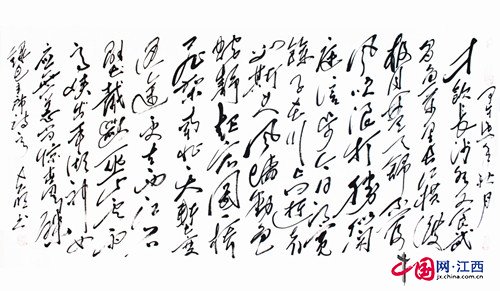 才飲长沙水又食武
昌鱼万里长江横渡
极目楚天舒不管
风吹浪打胜似闲
庭信步今日得宽
馀子在川上曰逝者
如斯夫风樯动龟
蛇静起宏图一桥
飞架南北天堑变
通途更立西江石
壁截断巫山云雨
高峡出平湖神女
应无恙当惊世界殊
中国网·江西
jx.china.com.cn